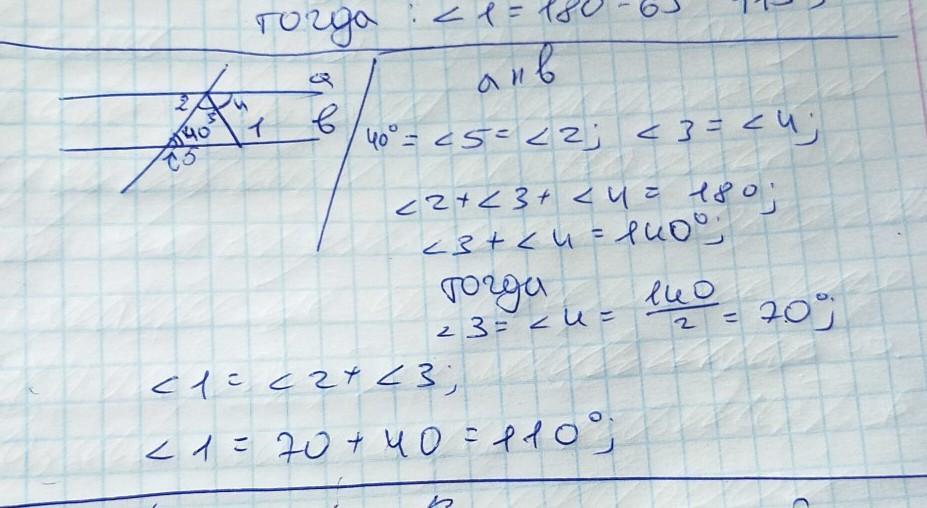 тогда : < 1 = 180 - 65
a
2 4
40° 3 1 в
5
a || в
40° = < 5 = < 2; < 3 = < 4;
< 2 + < 3 + < 4 = 180;
< 3 + < 4 = 140°;
тогда
< 3 = < 4 = 140/2 = 70°;
< 1 = < 2 + < 3;
< 1 = 70 + 40 = 110°;